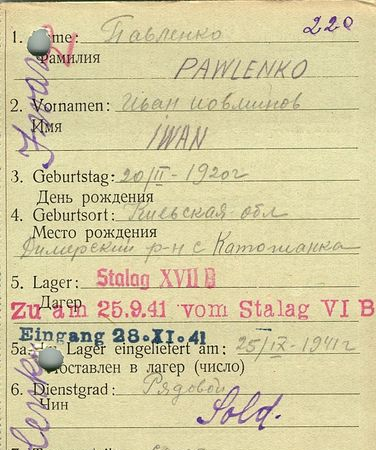 220
1. Name: Павленко
Фамилия
PAWLENKO
2. Vornamen: Иван
Имя
IWAN
3. Geburtstag: 20/II - 1920г
День рождения
4. Geburtsort: Киевская обл
Место рождения
Димерский р-н с Катюжанка
5. Lager: Stalag XVII B
Лагер
Zu am 25.9.41 vom Stalag VI B
Eingang 28.XI.41
5a. Lager eingeliefert am: 25/IX-1941г
Доставлен в лагер (число)
6. Dienstgrad: Рядовой
Чин
Sold.